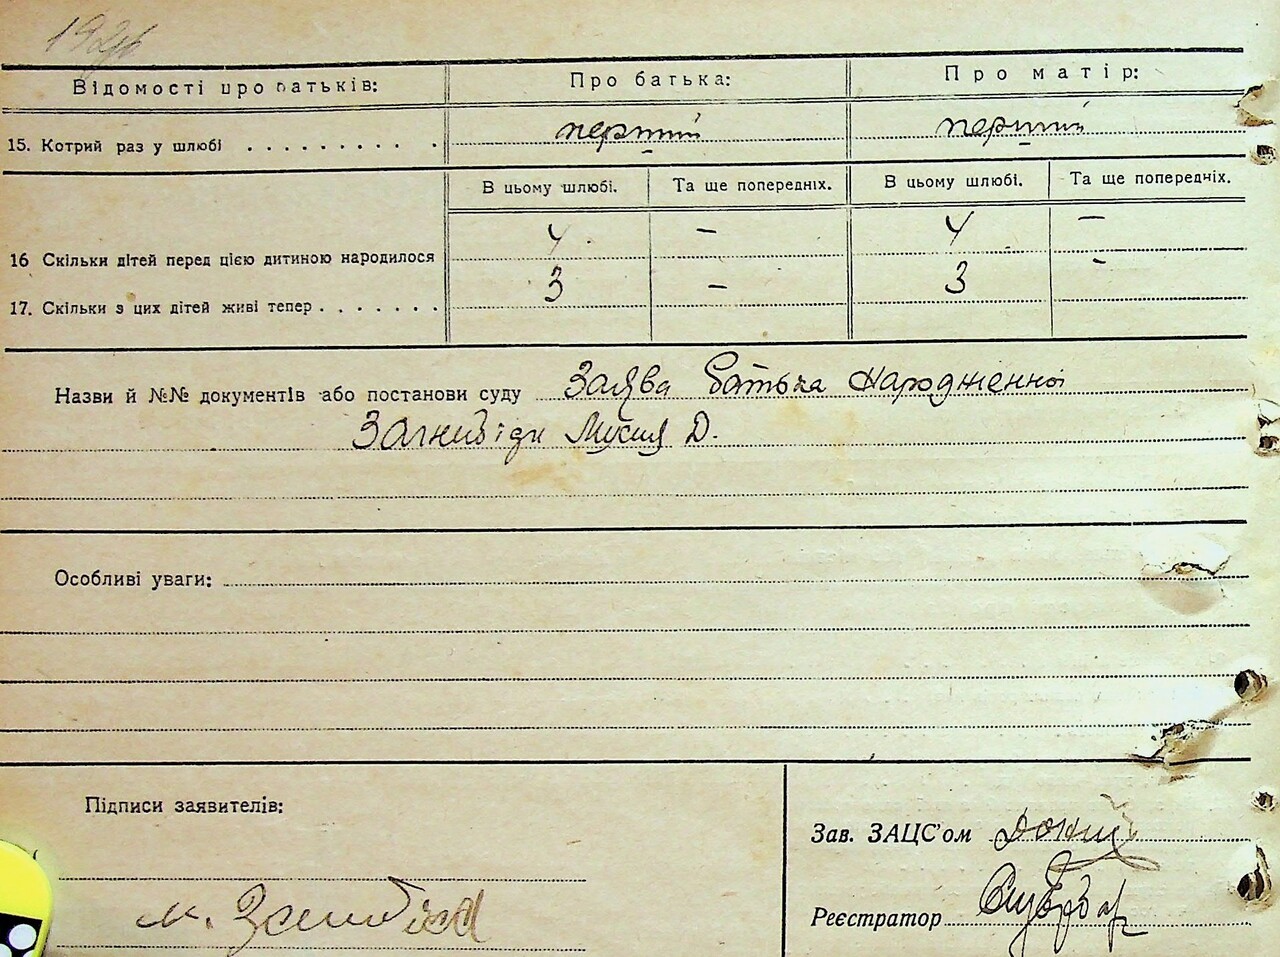 Відомості про батьків: Про батька: Про матір:
15. Котрий раз у шлюбі . . . . . . . . . . перший перший
В цьому шлюбі. Та ще попередніх. В цьому шлюбі. Та ще попередніх.
16 Скільки дітей перед цією дитиною народилося 4 – 4 –
17. Скільки з цих дітей живі тепер . . . . . . . 3 – 3 –
Назви й №№ документів або постанови суду Заява батька народженної
Загнибіди Мусия Д.
Особливі уваги:
Підписи заявителів:
Зав. ЗАЦС'ом
м. Загнибіда
Реєстратор